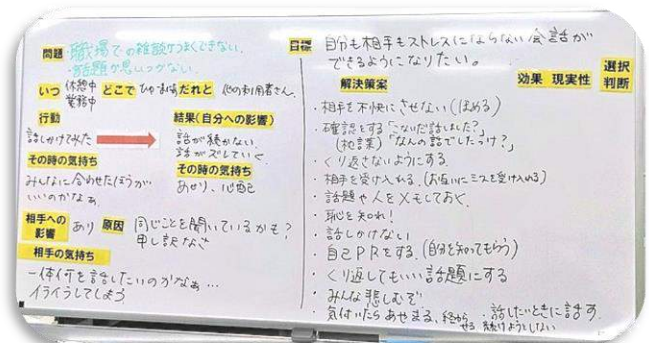 問題 ・職場での雑談がうまくできない。
・話題が思いつかない。
いつ 休憩中 業務中 どこで ひかま峠 だれと 他の利用者さん。
行動
話しかけてみた
その時の気持ち
みんなに合わせたほうが
いいのかなぁ
結果(自分への影響)
話が続かない
話がズレていく
その時の気持ち
あせり、心配
相手への影響 あり 原因 同じことを聞いているかも?
申し訳なさ
相手の気持ち
一体何を話したいのかなぁ…
イライラしてしまう
目標 自分も相手もストレスにならない会話が
できるようになりたい。
解決策案 効果 現実性 選択判断
・相手を不快にさせない(ほめる)
・確認をする「こないだ話しました?」
(枕言葉)「なんの話でしたっけ?」
・くり返さないようにする
・相手を受け入れる。(お互いにミスを受け入れる)
・話題や人をメモしておく。
・恥を知れ!
・話しかけない
・自己PRをする。(自分を知ってもらう)
・くり返してもいい話題にする
・みんな悲しむぞ
・気付いたらあやまる、
・話したいときに話す
続けようとしない